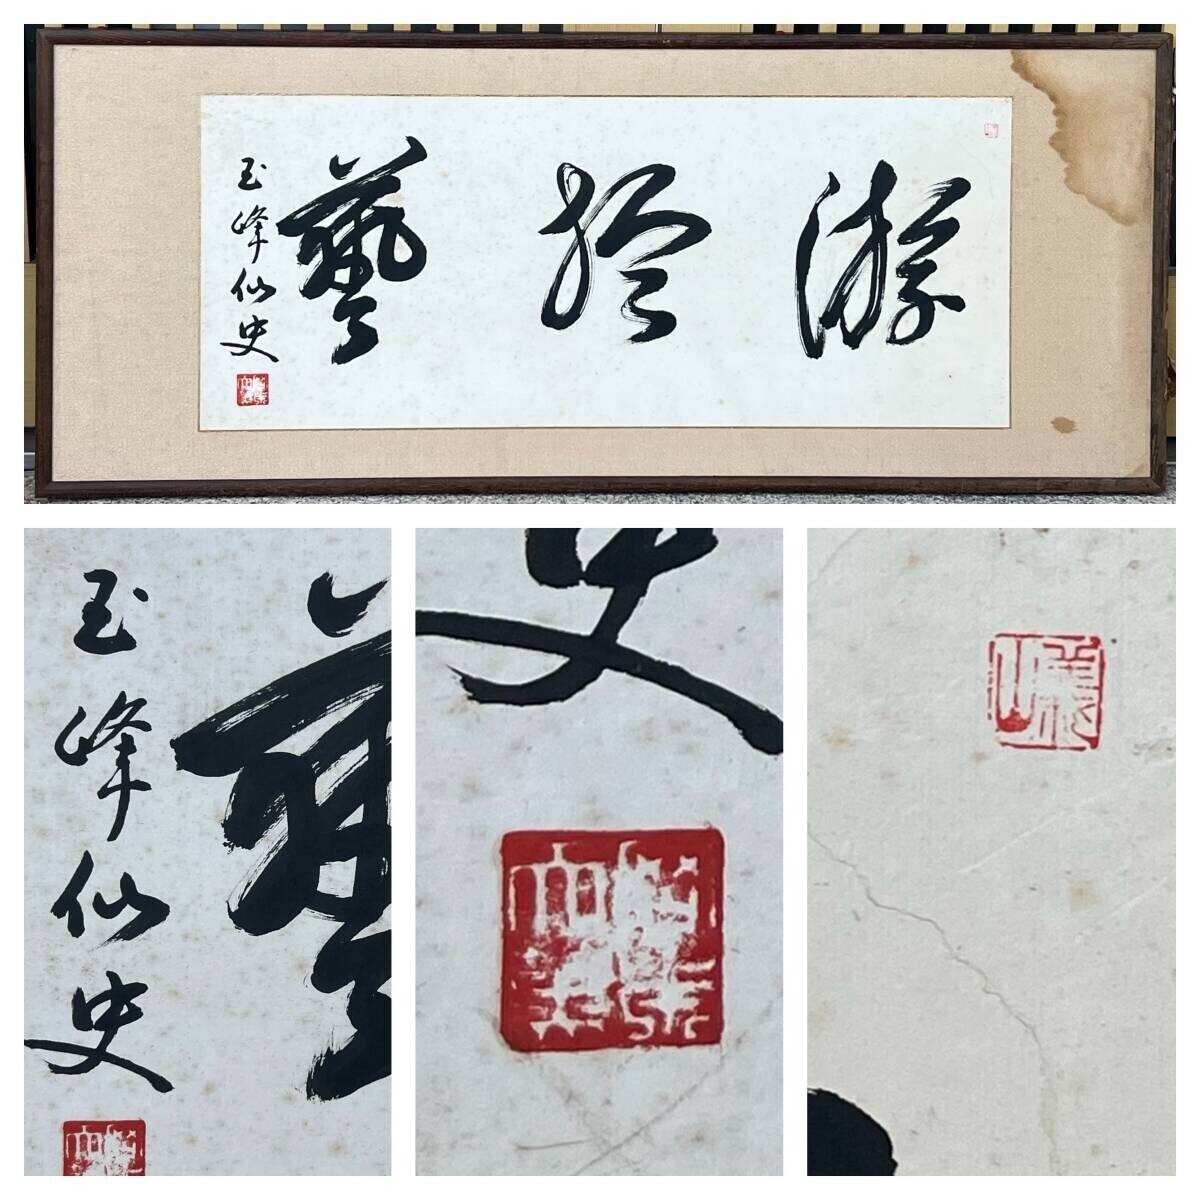 游於藝
玉峰仙史
玉峰仙史
史